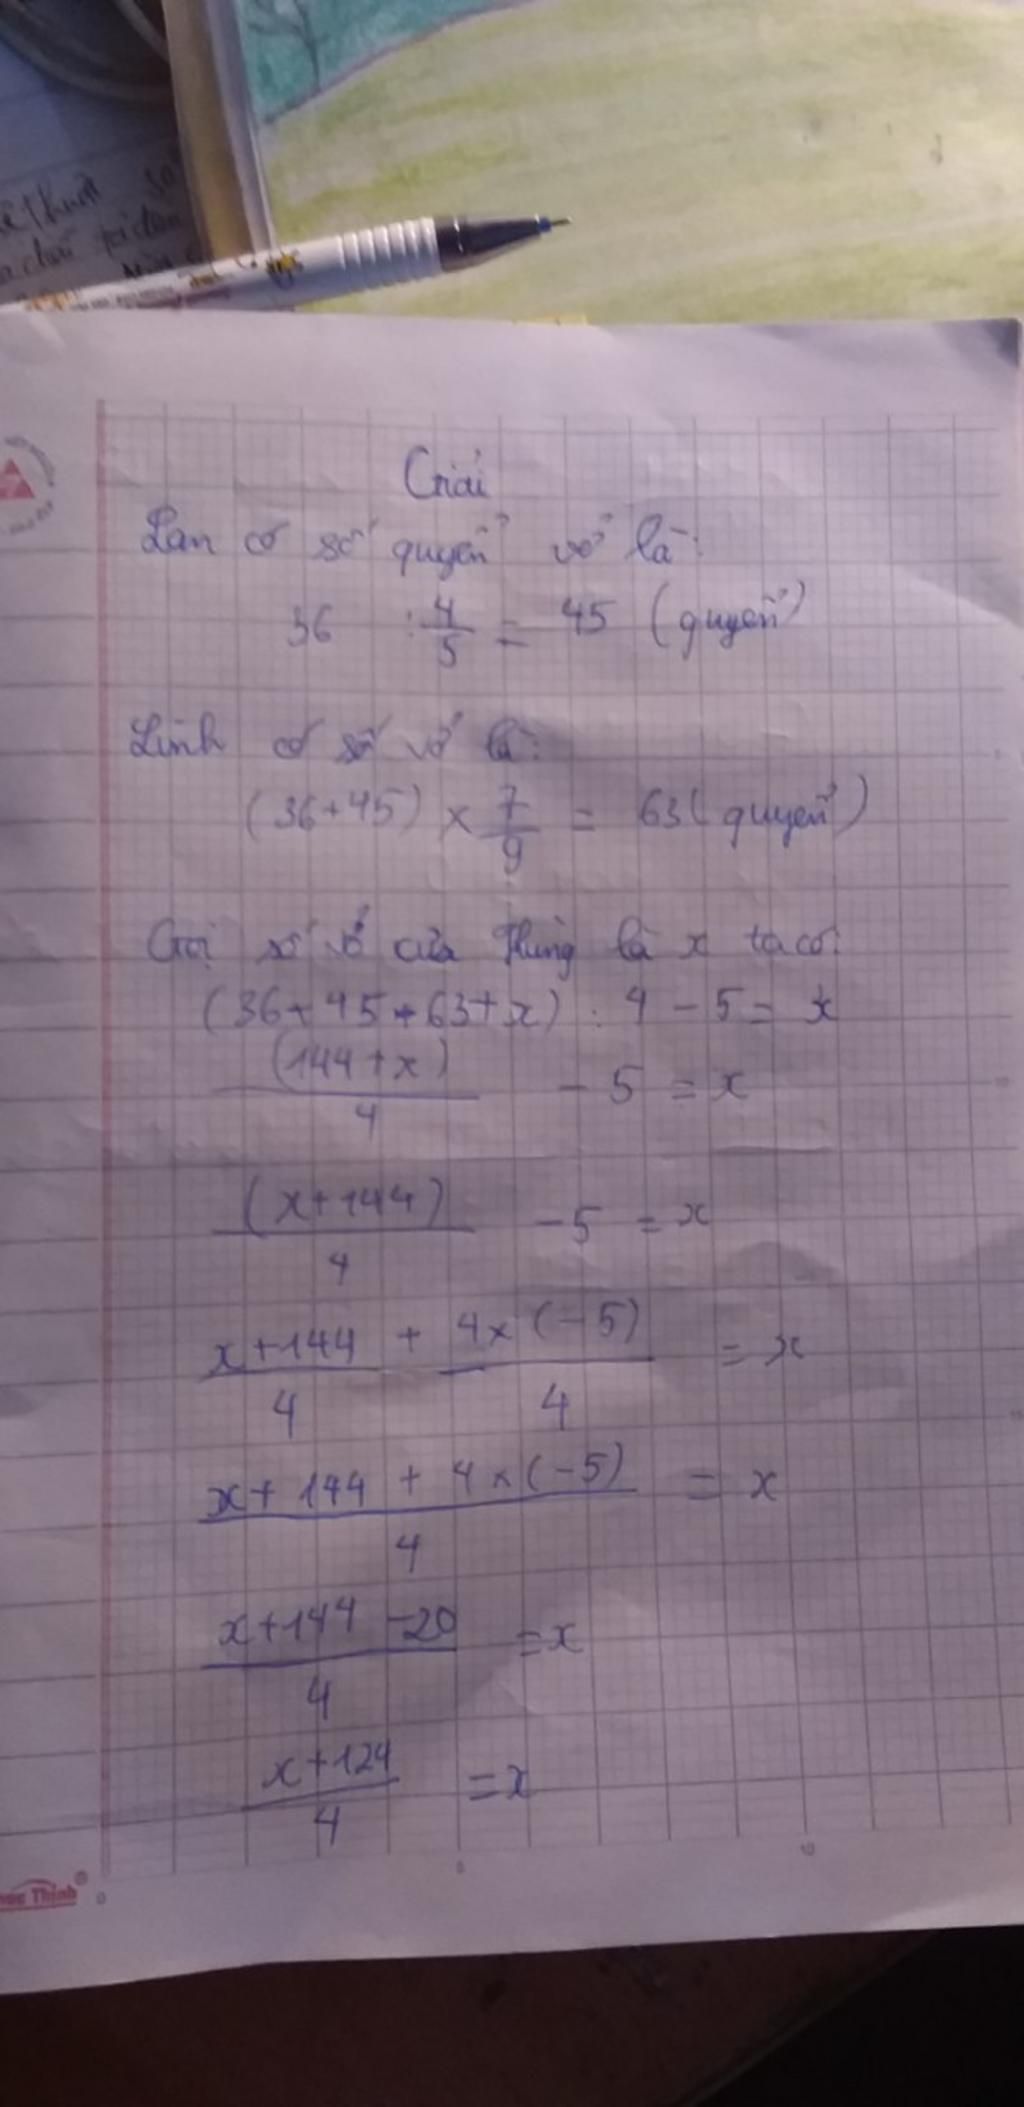 Giải
Lan có số quyển vở là:
36 : 4/5 = 45 (quyển)
Linh có số vở là:
(36+45) × 7/9 = 63 (quyển)
Gọi số vở của Hùng là x ta có:
(36+45+63+x) : 4 - 5 = x
(144+x)/4 - 5 = x
(x+144)/4 - 5 = x
x+144/4 + 4×(-5)/4 = x
x+144+4×(-5)/4 = x
x+144-20/4 = x
x+124/4 = x